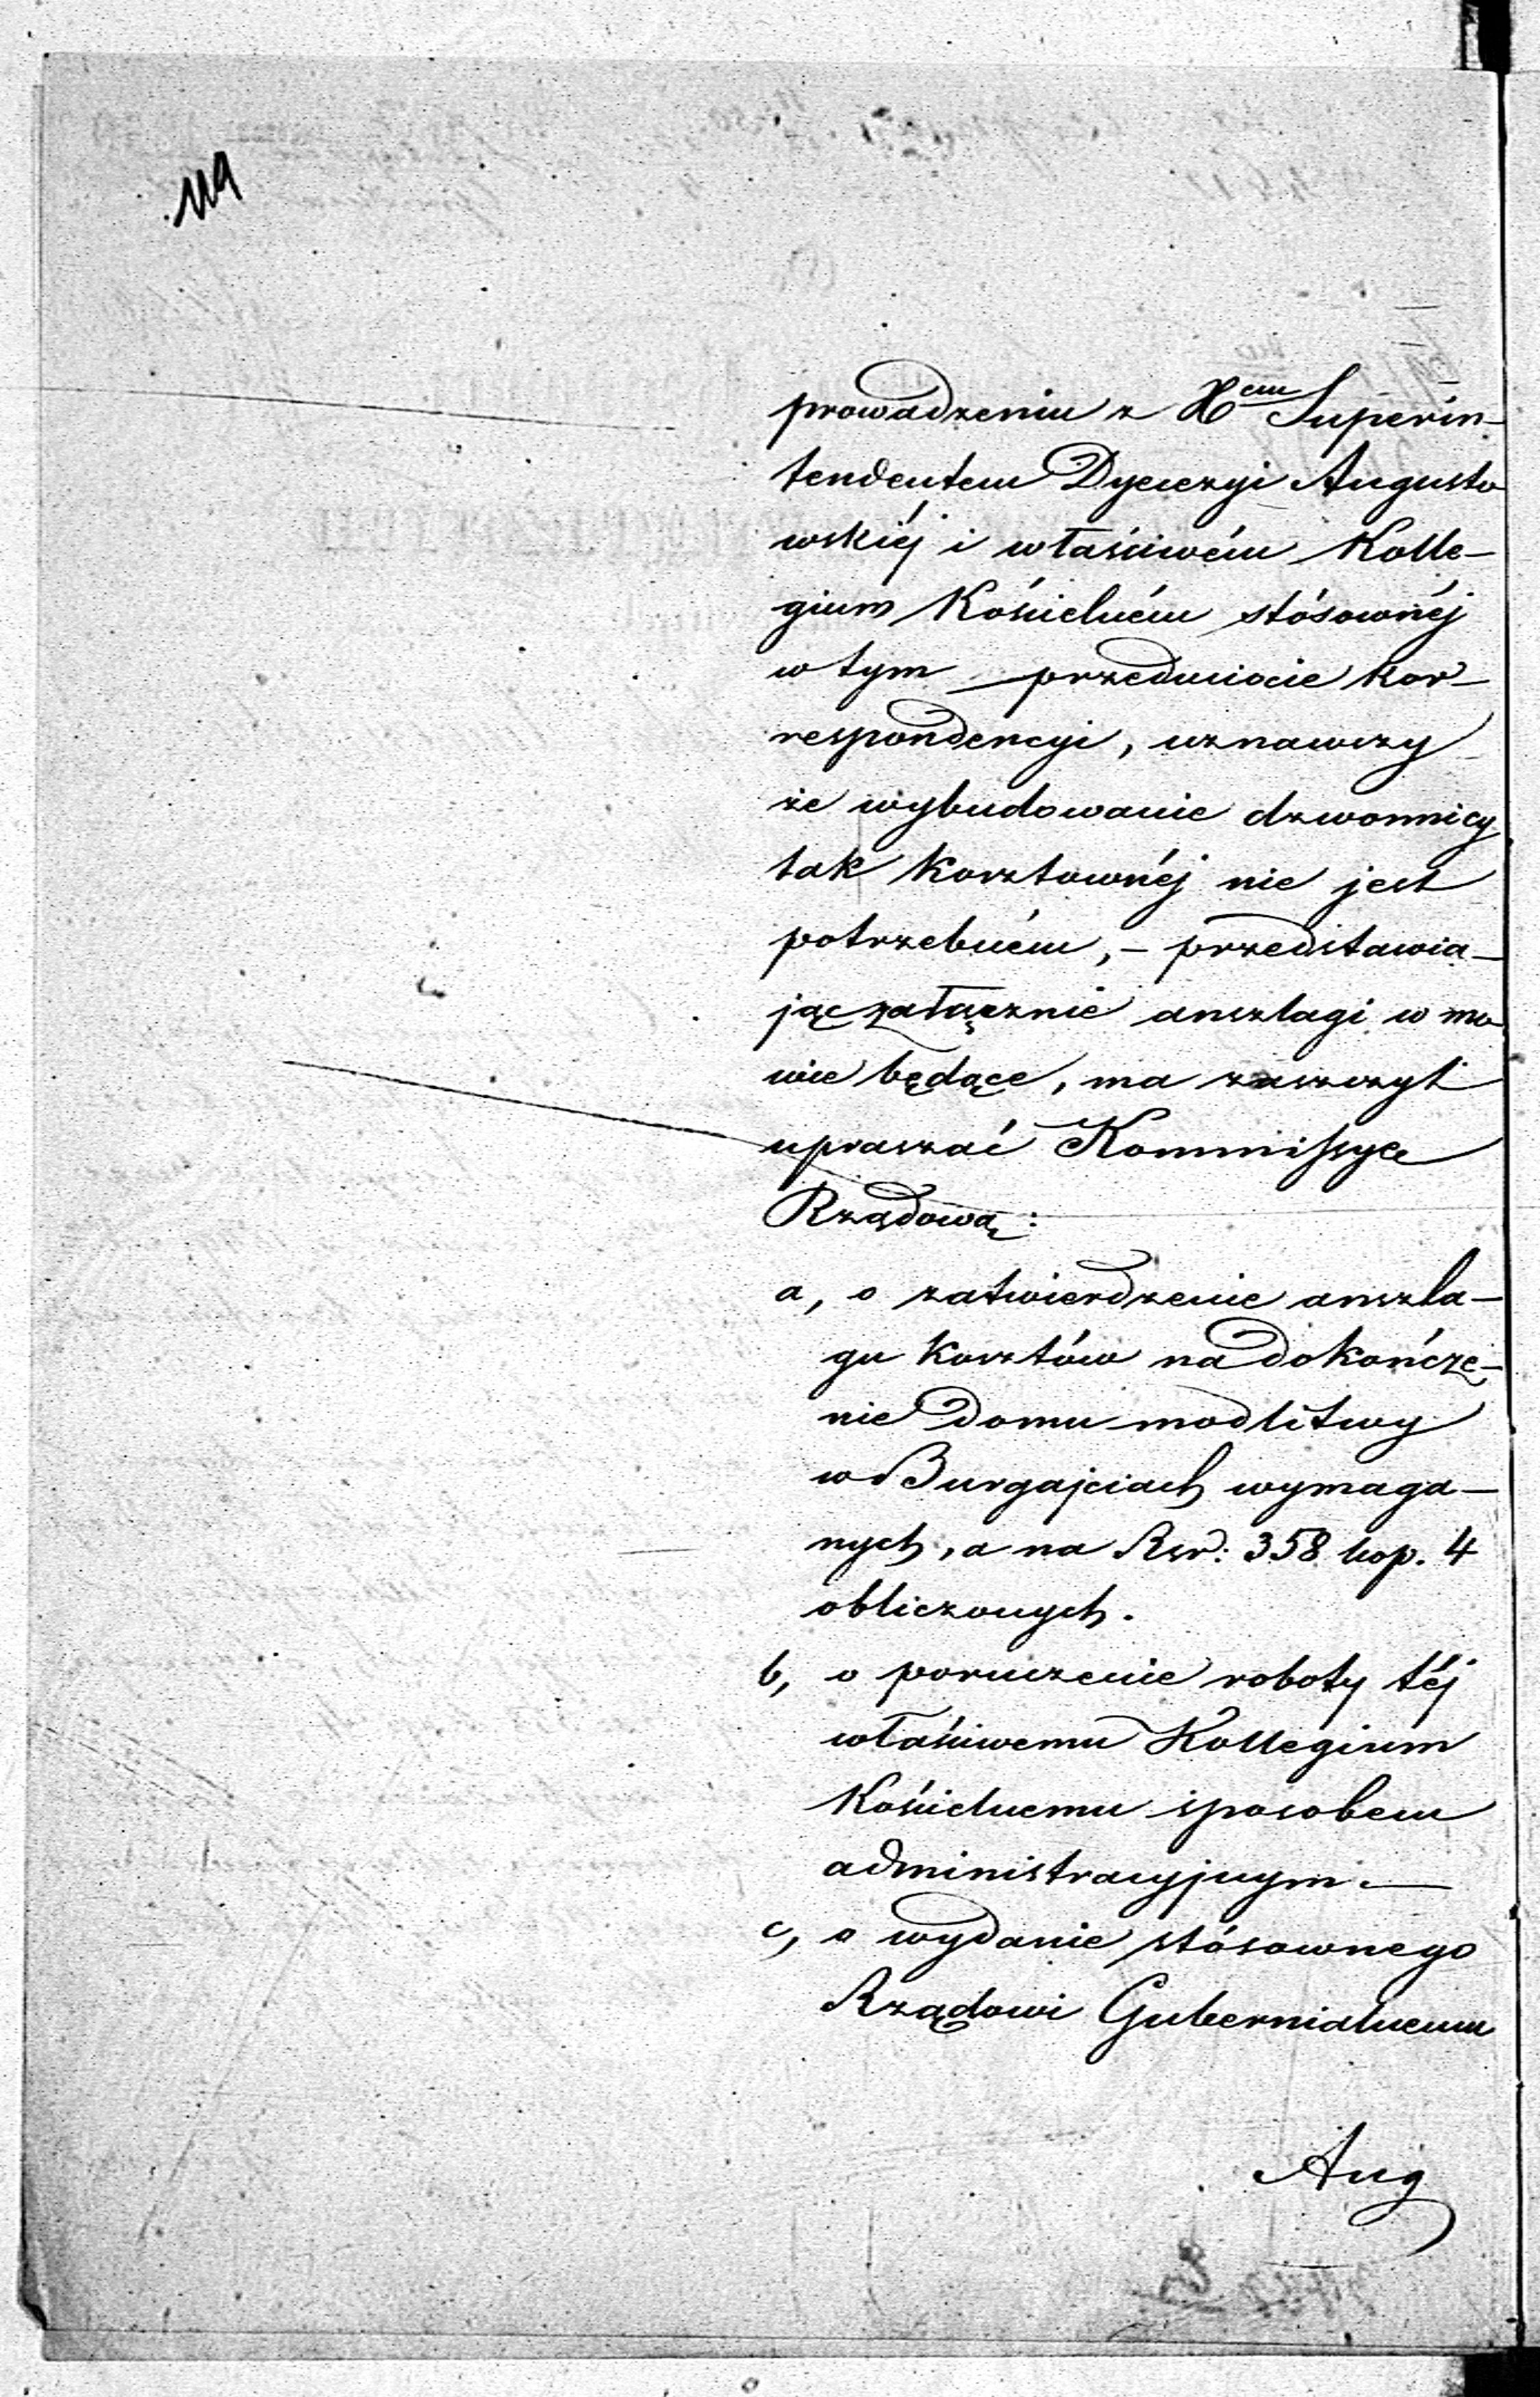 119
prowadzeniu z X<sup>em</sup> Superin-
tendentem Dyecezyi Augusto
wskiéj i właściwém Kolle-
gium Kościelném stósownéj
w tym przedmiocie kor-
respondencyi, uznawszy
że wybudowanie dzwonnicy
tak kosztownéj nie jest
potrzebném, – przedstawia-
jąc załącznie anszlagi w mo
wie będące, ma zaszczyt
upraszać Kommissyę
Rządową:
a, o zatwierdzenie anszla-
gu kosztów na dokończe-
nie domu modlitwy
w Burgajciach wymaga-
nych, a na Rsr: 358 kop. 4
obliczonych.
b, o poruczenie roboty téj
właściwemu Kollegium
Kościelnemu sposobem
administracyjnym.—
c, o wydanie stósownego
Rządowi Gubernialnemu
Aug